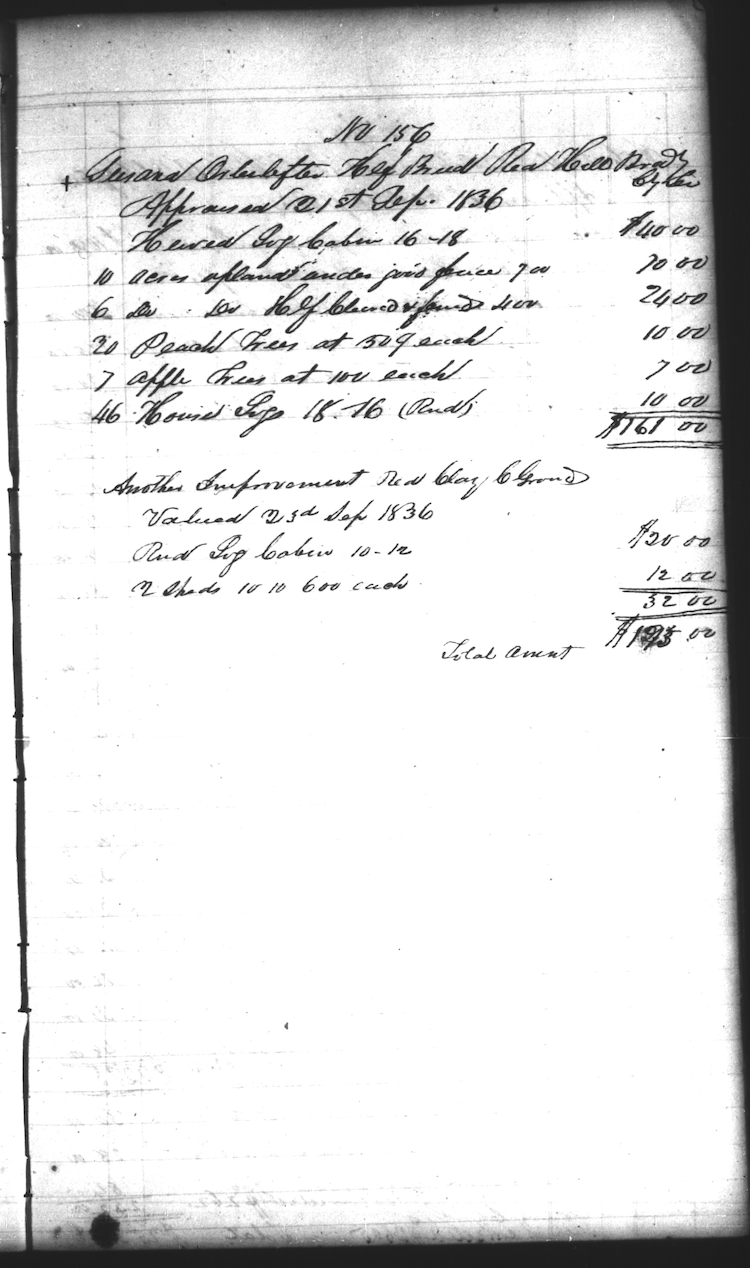 No 156
Susana Half Breed Red Hill Bradly
Appraised 21st Sep. 1836
Hewed Log Cabin 16-18 $40 00
10 acres upland under good fence 700 70 00
6 Do Do Half Cleared & fencd 400 24 00
20 Peach Trees at 50¢ each 10 00
7 apple Trees at 100 each 7 00
46 House Logs 18-16 (Rud) 10 00
$161 00
Another Improvement Red Clay C Ground
Valued 23d Sep 1836
Rud Log Cabin 10-12 $20 00
2 Sheds 10 10 600 each 12 00
32 00
Total Amnt $193 00